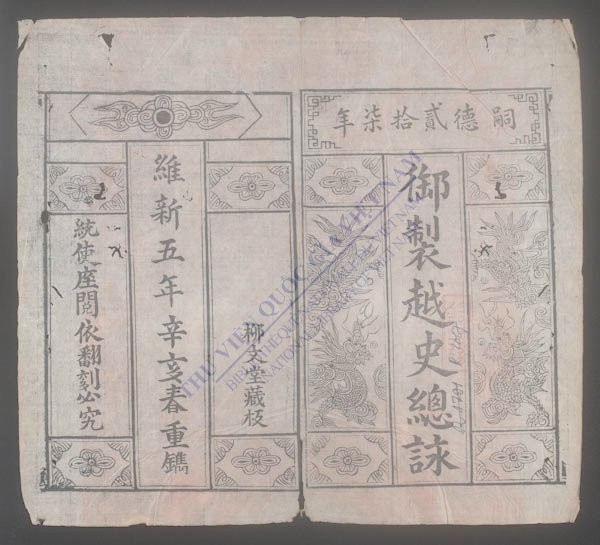 嗣德貳拾柒年
御製越史總詠
柳文堂藏板
維新五年辛亥春重鐫
統使座閱依翻刻必究
THƯ VIỆN QUỐC GIA VIỆT NAM
BIBLIOTHEQUE NATIONALE DU VIETNAM
NATIONAL LIBRARY OF VIETNAM